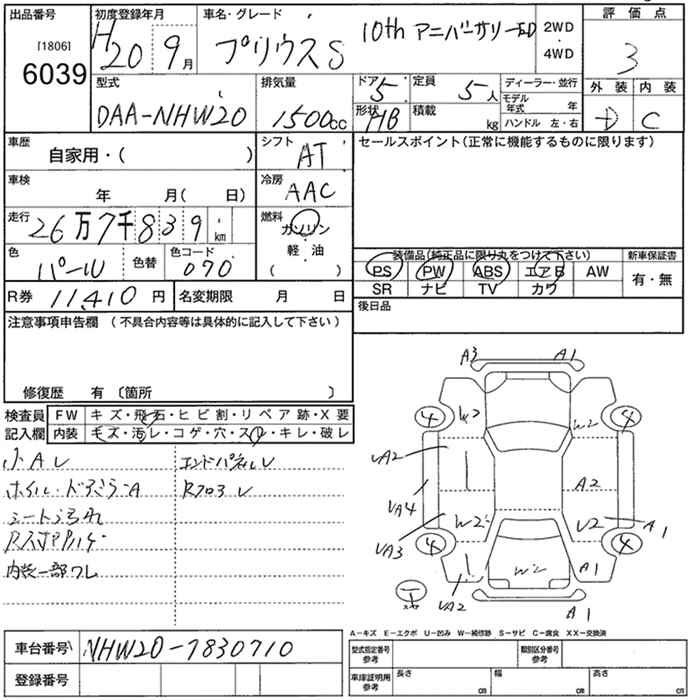 出品番号 初度登録年月 車名・グレード 評価点
[1806] H20 9月 プリウスS 10th アニバーサリーED 2WD ・ 4WD 3
6039
型式 排気量 ドア 5 定員 5人 ディーラー・並行 外装 内装
DAA-NHW20 1500cc 形状 HB 積載 kg モデル年式 年 D C
ハンドル 左・右
車歴 自家用・( ) シフト AT セールスポイント(正常に機能するものに限ります)
車検 年 月( 日) 冷房 AAC
走行 26万7千839km 燃料 ガソリン
軽・油
( )
色 パール 色替 色コード 070 装備品(純正品に限り丸をつけて下さい) 新車保証書
PS PW ABS エアB AW 有・無
SR ナビ TV カワ
R券 11,410円 名変期限 月 日 後日品
注意事項申告欄(不具合内容等は具体的に記入して下さい)
修復歴 有〔箇所 〕
検査員 FW キズ・飛石・ヒビ割・リペア跡・X要
記入欄 内装 キズ・汚レ・コゲ・穴・スレ・キレ・破レ
小A レ エンドパネルレ
ホイル・ドアミラーA Rフロア レ
シート汚れ
内装一部ワレ
A3 A1
4 W2 W2 4
UA2 A2
UA4
UA3 W2 U2 A1
4 4
UA2 W2 A1
A1
A-キズ E-エクボ U-凹み W-補修跡 S-サビ C-腐食 XX-交換済
車台番号 NHW20-7830710
登録番号
型式指定番号 参考 類別区分番号 参考
車庫証明用 参考 長さ cm 幅 cm 高さ cm